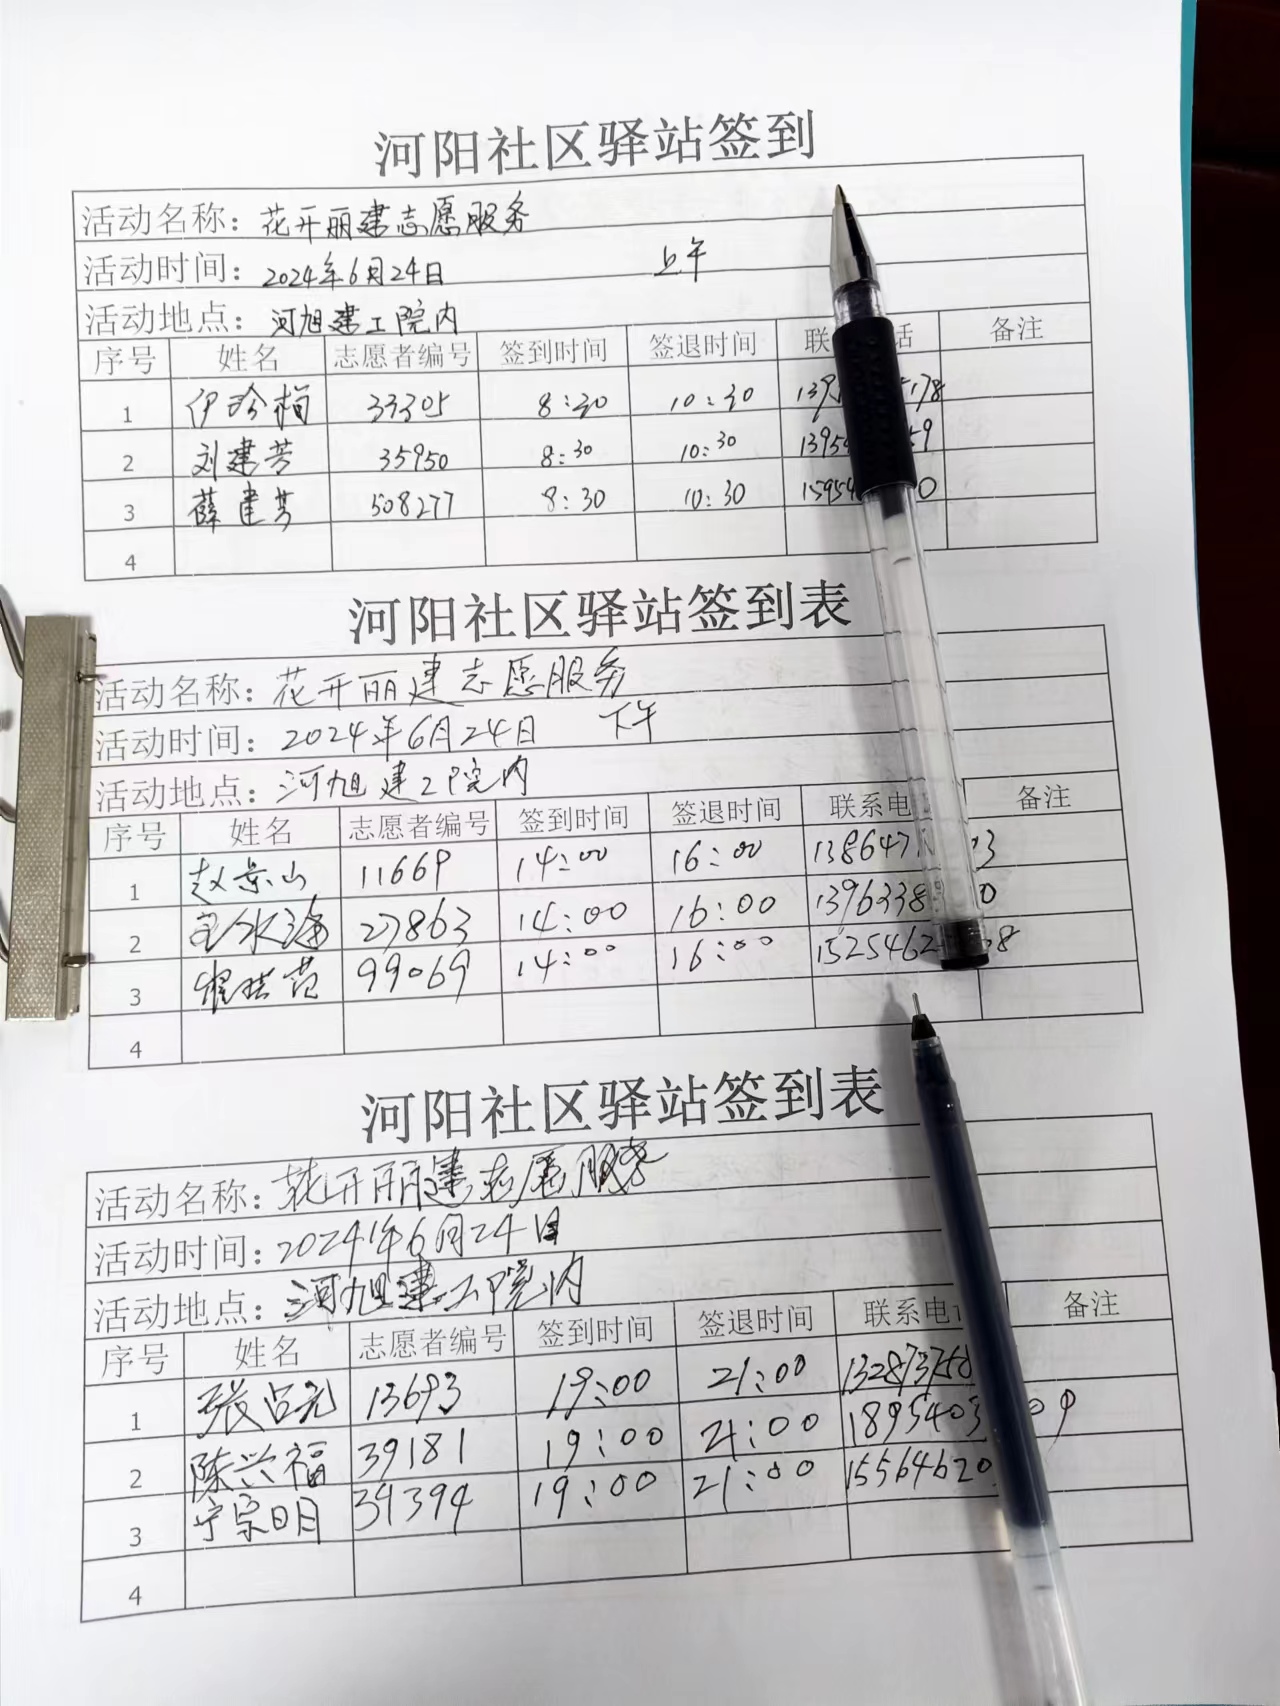 河阳社区驿站签到
活动名称：花开丽建志愿服务
活动时间：2024年6月24日 上午
活动地点：河旭建工院内
序号 姓名 志愿者编号 签到时间 签退时间 联 话 备注
1 伊珍梅 33305 8:30 10:30 139 178
2 刘建芳 35950 8:30 10:30 13954 59
3 薛建芳 508277 8:30 10:30 15954 0
4
河阳社区驿站签到表
活动名称：花开丽建志愿服务
活动时间：2024年6月24日 下午
活动地点：河旭建工院内
序号 姓名 志愿者编号 签到时间 签退时间 联系电 备注
1 赵景山 11669 14:00 16:00 138647 03
2 27863 14:00 16:00 1396338 0
3 99069 14:00 16:00 1525462 08
4
河阳社区驿站签到表
活动名称：花开丽建志愿服务
活动时间：2024年6月24日
活动地点：河旭建工院内
序号 姓名 志愿者编号 签到时间 签退时间 联系电 备注
1 张占元 13693 19:00 21:00 132873750
2 陈兴福 39181 19:00 21:00 1895403 09
3 宁宗明 39394 19:00 21:00 15564620
4